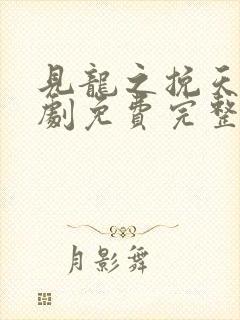 見龍之挽天
劇免費完整
月影舞